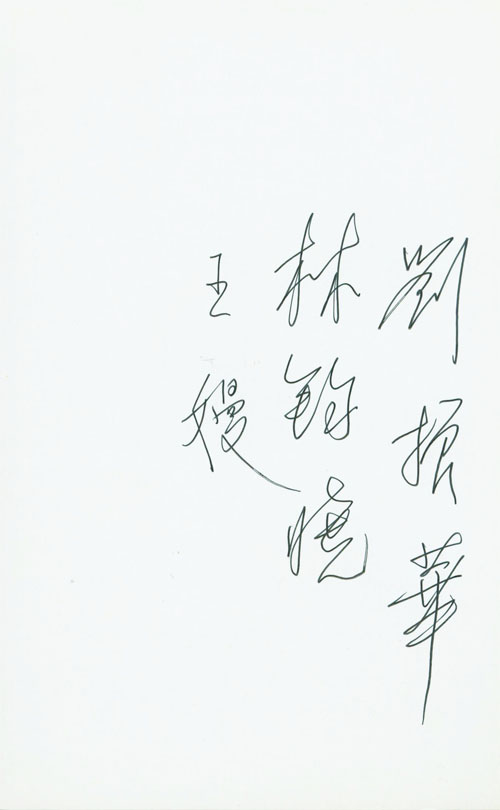 劉振華
林錦曉
王嫚